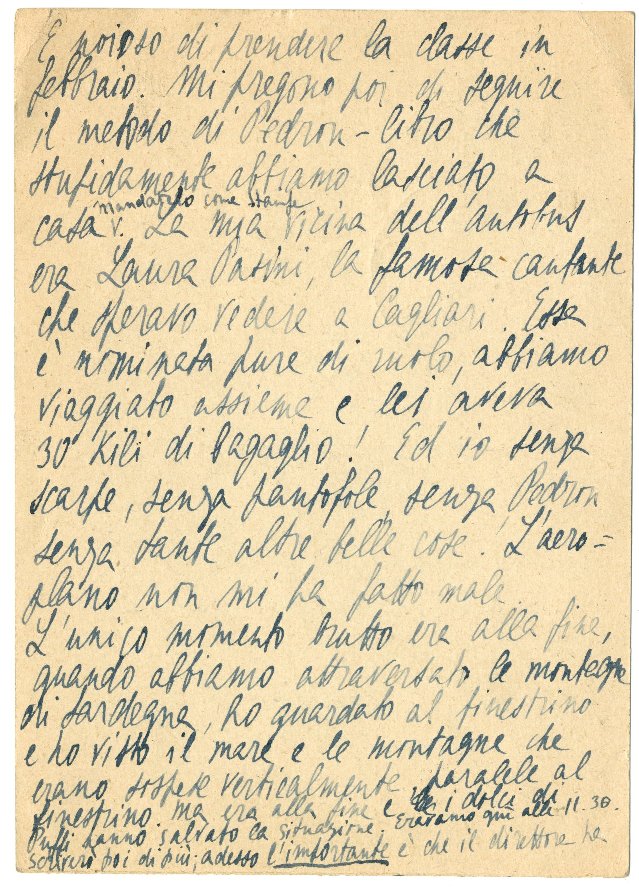 È noioso di prendere la classe in
febbraio. Mi pregono poi di seguire
il metodo di Pedron - libro che
stupidamente abbiamo lasciato a
mandatelo come stampe
casa v. La mia vicina dell'autobus
era Laura Pasini, la famosa cantante
che speravo vedere a Cagliari. Essa
è nominata pure di ruolo, abbiamo
viaggiato assieme e lei aveva
30 Kili di bagaglio! Ed io senza
scarpe, senza pantofole, senza Pedron
senza tante altre belle cose! L'aero-
plano non mi ha fatto male.
L'unico momento brutto era alla fine,
quando abbiamo attraversato le montagne
di Sardegna, ho guardato al finestrino
e ho visto il mare e le montagne che
erano sospese verticalmente, paralele al
finestrino ma era alla fine e i dolci di
Putti hanno salvato la situazione. Eravamo qui alle 11.30.
Scriverò poi di più; adesso l'importante è che il direttore ha